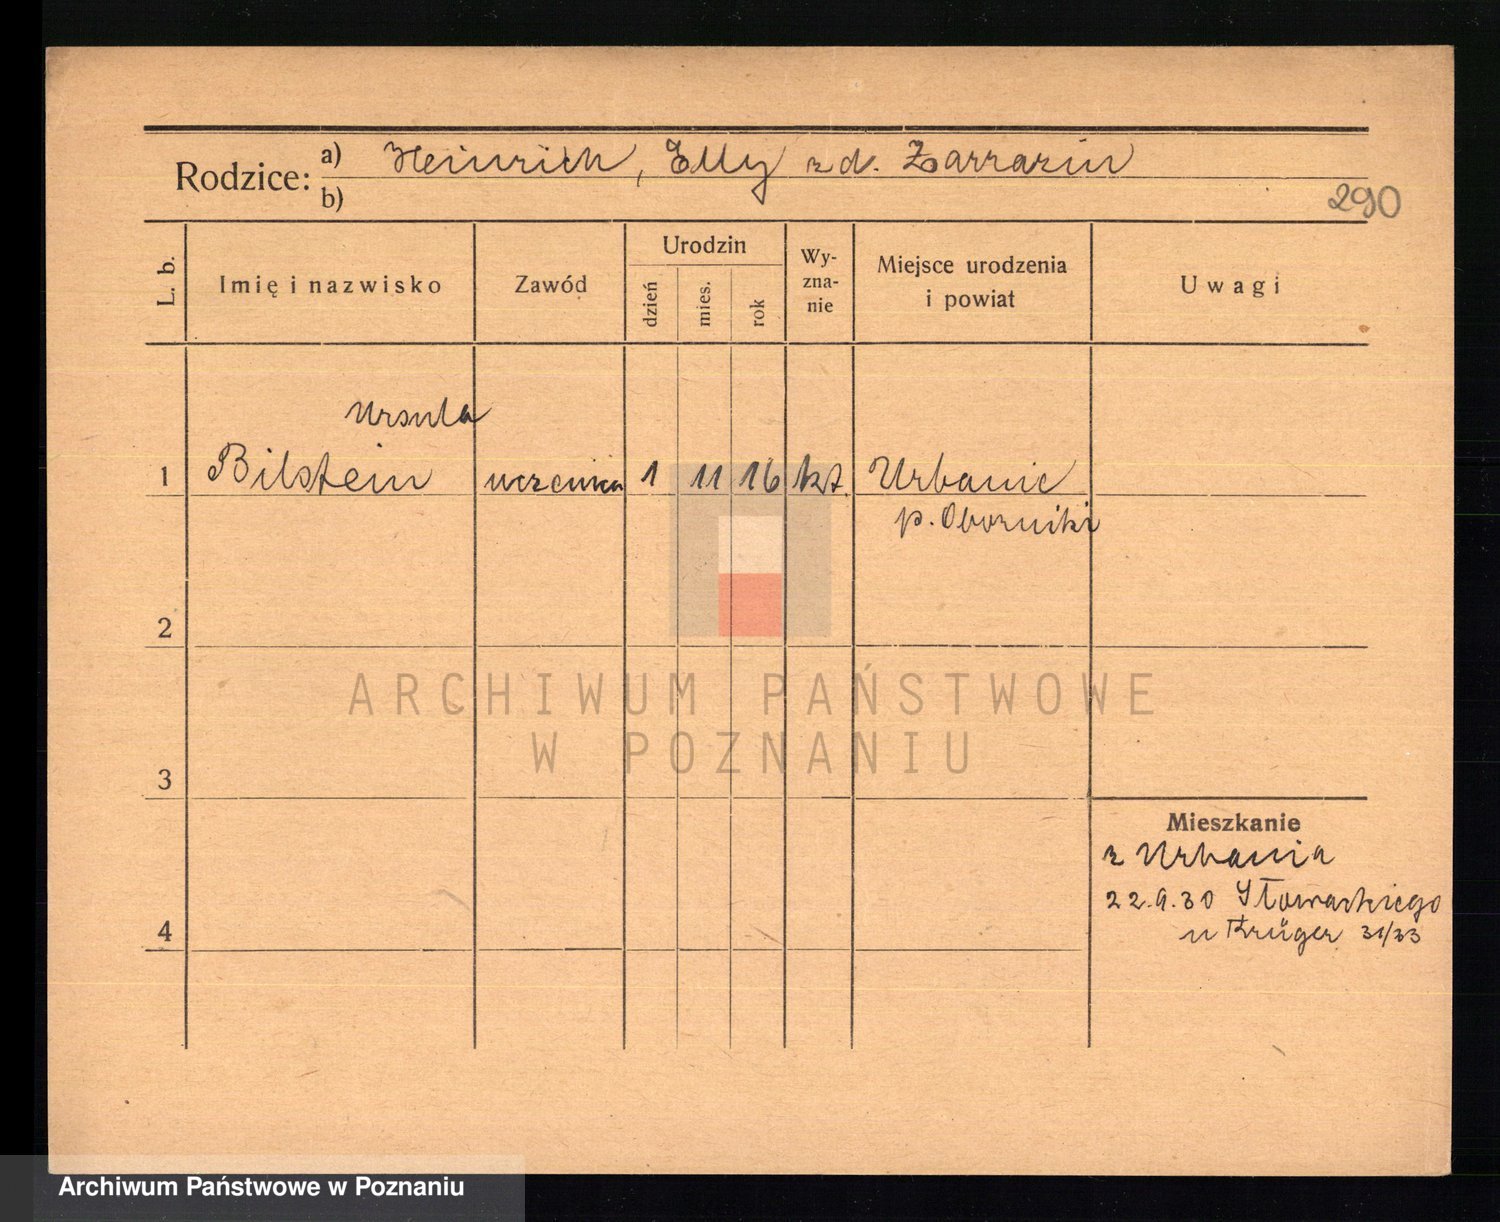 Rodzice: a) Heinrich, Elly z d. Zarrazin
b)
290
L. b.
Imię i nazwisko
Zawód
Urodzin
dzień
mies.
rok
Wy-
zna-
nie
Miejsce urodzenia
i powiat
Uwagi
Ursula
1 Bilstein uczenica 1 11 16 kat. Urbanie
p. Oborniki
2
ARCHIWUM PAŃSTWOWE
W POZNANIU
3
Mieszkanie
z Urbania
22.9.30 Słowackiego
u Krüger 31/33
4
Archiwum Państwowe w Poznaniu